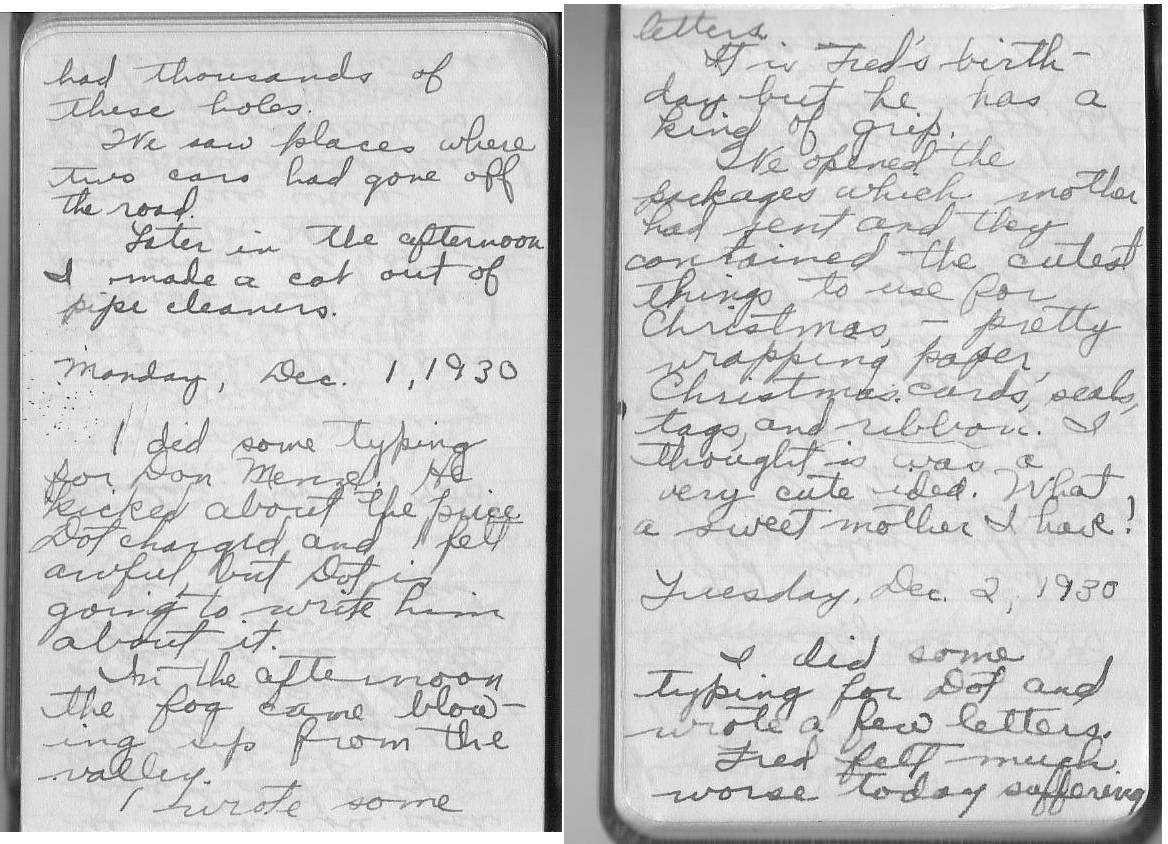 had thousands of
these holes.
We saw places where
two cars had gone off
the road.
Later in the afternoon
I made a cat out of
pipe cleaners.
Monday, Dec. 1, 1930
I did some typing
for Don Menzel. He
kicked about the price
Dot charged and I felt
awful, but Dot is
going to write him
about it.
In the afternoon
the fog came blow-
ing up from the
valley.
I wrote some
letters.
It is Fred's birth-
day but he has a
kind of grip.
We opened the
packages which mother
had sent and they
contained the cutest
things to use for
Christmas, - pretty
wrapping paper,
Christmas cards, seals,
tags, and ribbon. I
thought is was a
very cute idea. What
a sweet mother I have!
Tuesday, Dec. 2, 1930
I did some
typing for Dot and
wrote a few letters.
Fred felt much
worse today suffering